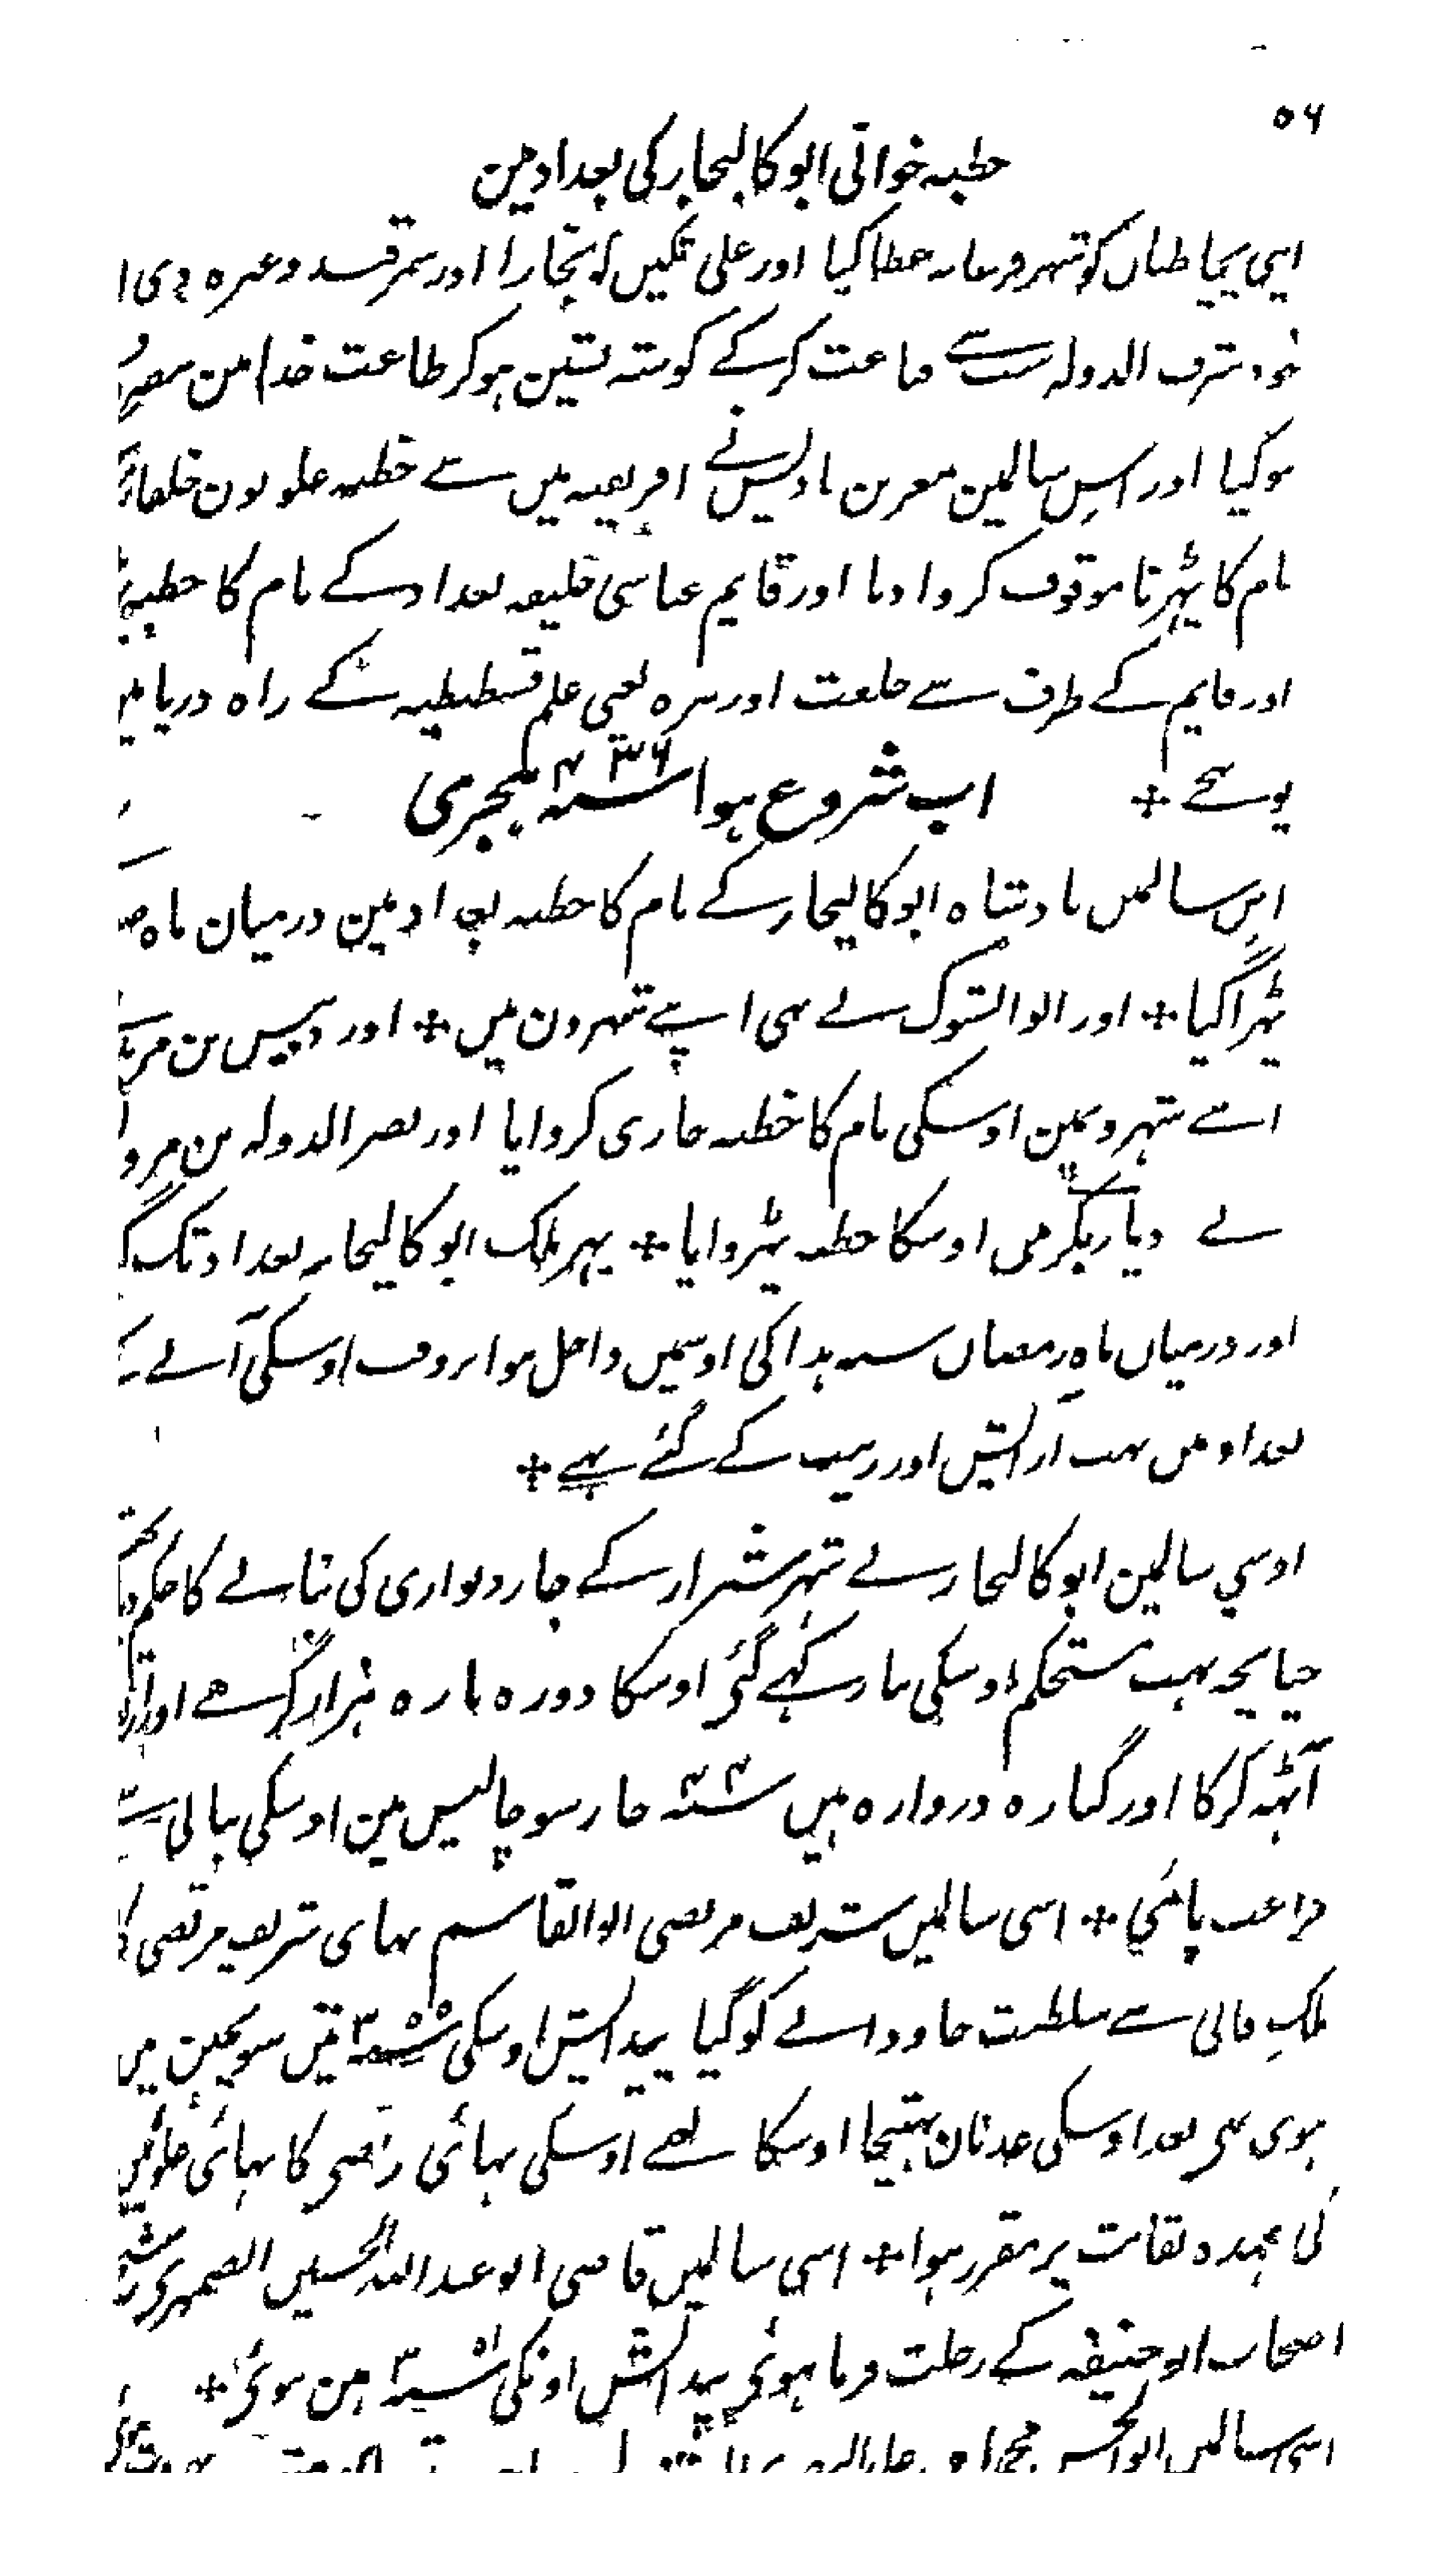 ٥٦
خطبہ خوانی ابو کالیجار کی بغداد مین
اپنی چچا طغان کو شہر فرغانہ عطا کیا اور علی تکین کو بخارا اور سمرقند وغیرہ دی ا
خود شرف الدولہ نے قناعت کر کے گوشہ نشین ہو کر طاعت خدا مین مصروف
ہو گیا اور اس سالمین معز بن بادیس نے افریقیہ میں سے خطبہ علویون خلفاء
نام کا پڑہنا موقوف کروا دیا اور قایم عباسی خلیفہ بغداد کے نام کا خطبہ
اور قایم کے طرف سے خلعت اور یعنی علم قسطنطنیہ کے راہ دریا میں
پہونچے +
اب شروع ہوا سنہ ۴۳۶ ہجری
اس سالمیں بادشاہ ابو کالیجار کے نام کا خطبہ بغداد مین درمیان ماہ
پڑہا گیا + اور ابو الشوک نے بہی اپنے شہرون میں + اور دبیس بن مزید
اپنے شہرونمین اوسکی نام کا خطبہ جاری کروایا اور نصر الدولہ بن مروا
نے دیار بکر میں اوسکا خطبہ پڑہوایا + پہر ملک ابو کالیجار بغداد تک
اور درمیان ماہ رمضان سنہ ہذا کی اوسمیں داخل ہوا بروقت اوسکی آنے
بغداد میں بہت آرایش اور زیب کے گئے ہے +
اوسی سالمین ابو کالیجار نے شہر شیراز کے چار دیواری کی بنانے کا حکم
چنانچہ بہت مستحکم اوسکی بناء رکہے گئی اوسکا دورہ بارہ ہزار گز ہے اور
آٹہہ گز کا اور گیارہ دروازہ ہیں سنہ ۴۴۰ چار سو چالیس مین اوسکی بنانی سے
فراغت پائی + اسی سالمیں شریف مرتضی ابو القاسم بہائی شریف رضی کا
ملک فانی سے سلطنت جاودانے کو گیا پیدایش اوسکی سنہ ۳۵۵ تین سو پچپن میں
ہوئی تہی بعد اوسکی عدنان بہتیجا اوسکا یعنے اوسکی بہائی رضی کا
کی عہدہ نقابت پر مقرر ہوا + اسی سالمیں قاضی ابو عبد اللہ الحسین الصیمری
اصحاب ابو حنیفہ کے رحلت فرما ہوئی پیدایش اونکی سنہ ۳۵۱ مین ہوئی +
اسی سالمیں ابو الحسن محمد